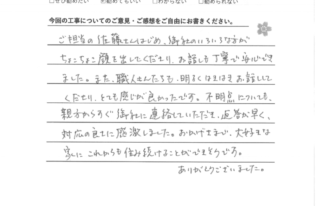 今回の工事についてのご意見・ご感想をご自由にお書きください。
ご担当の佐藤さんはじめ、御社のいろいろな方が
ちょこちょこ顔を出してくださり、お話しも丁寧で安心でき
ました。また、職人さんたちも、明るくはきはきお話しして
くださり、とても感じが良かったです。不明点についても、
親方からすぐ御社に連絡していただき、返答が早く、
対応の良さに感激しました。おかげさまで、大好きな
家にこれからも住み続けることができそうです。
ありがとうございました。